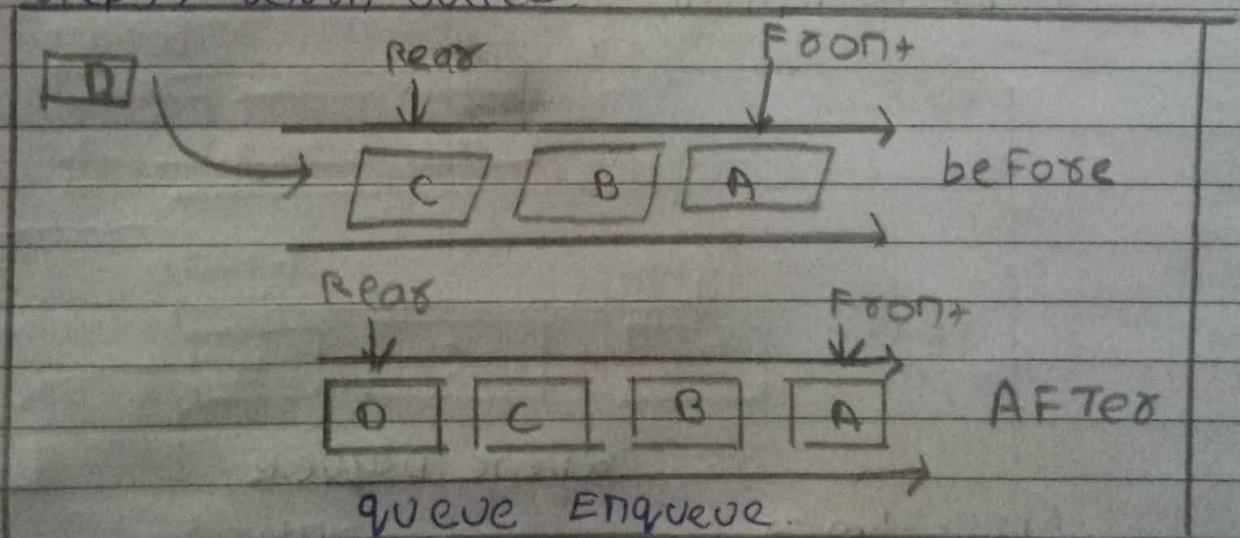 Rear Front
D
C B A before
Rear Front
D C B A AFTer
queue Enqueue.